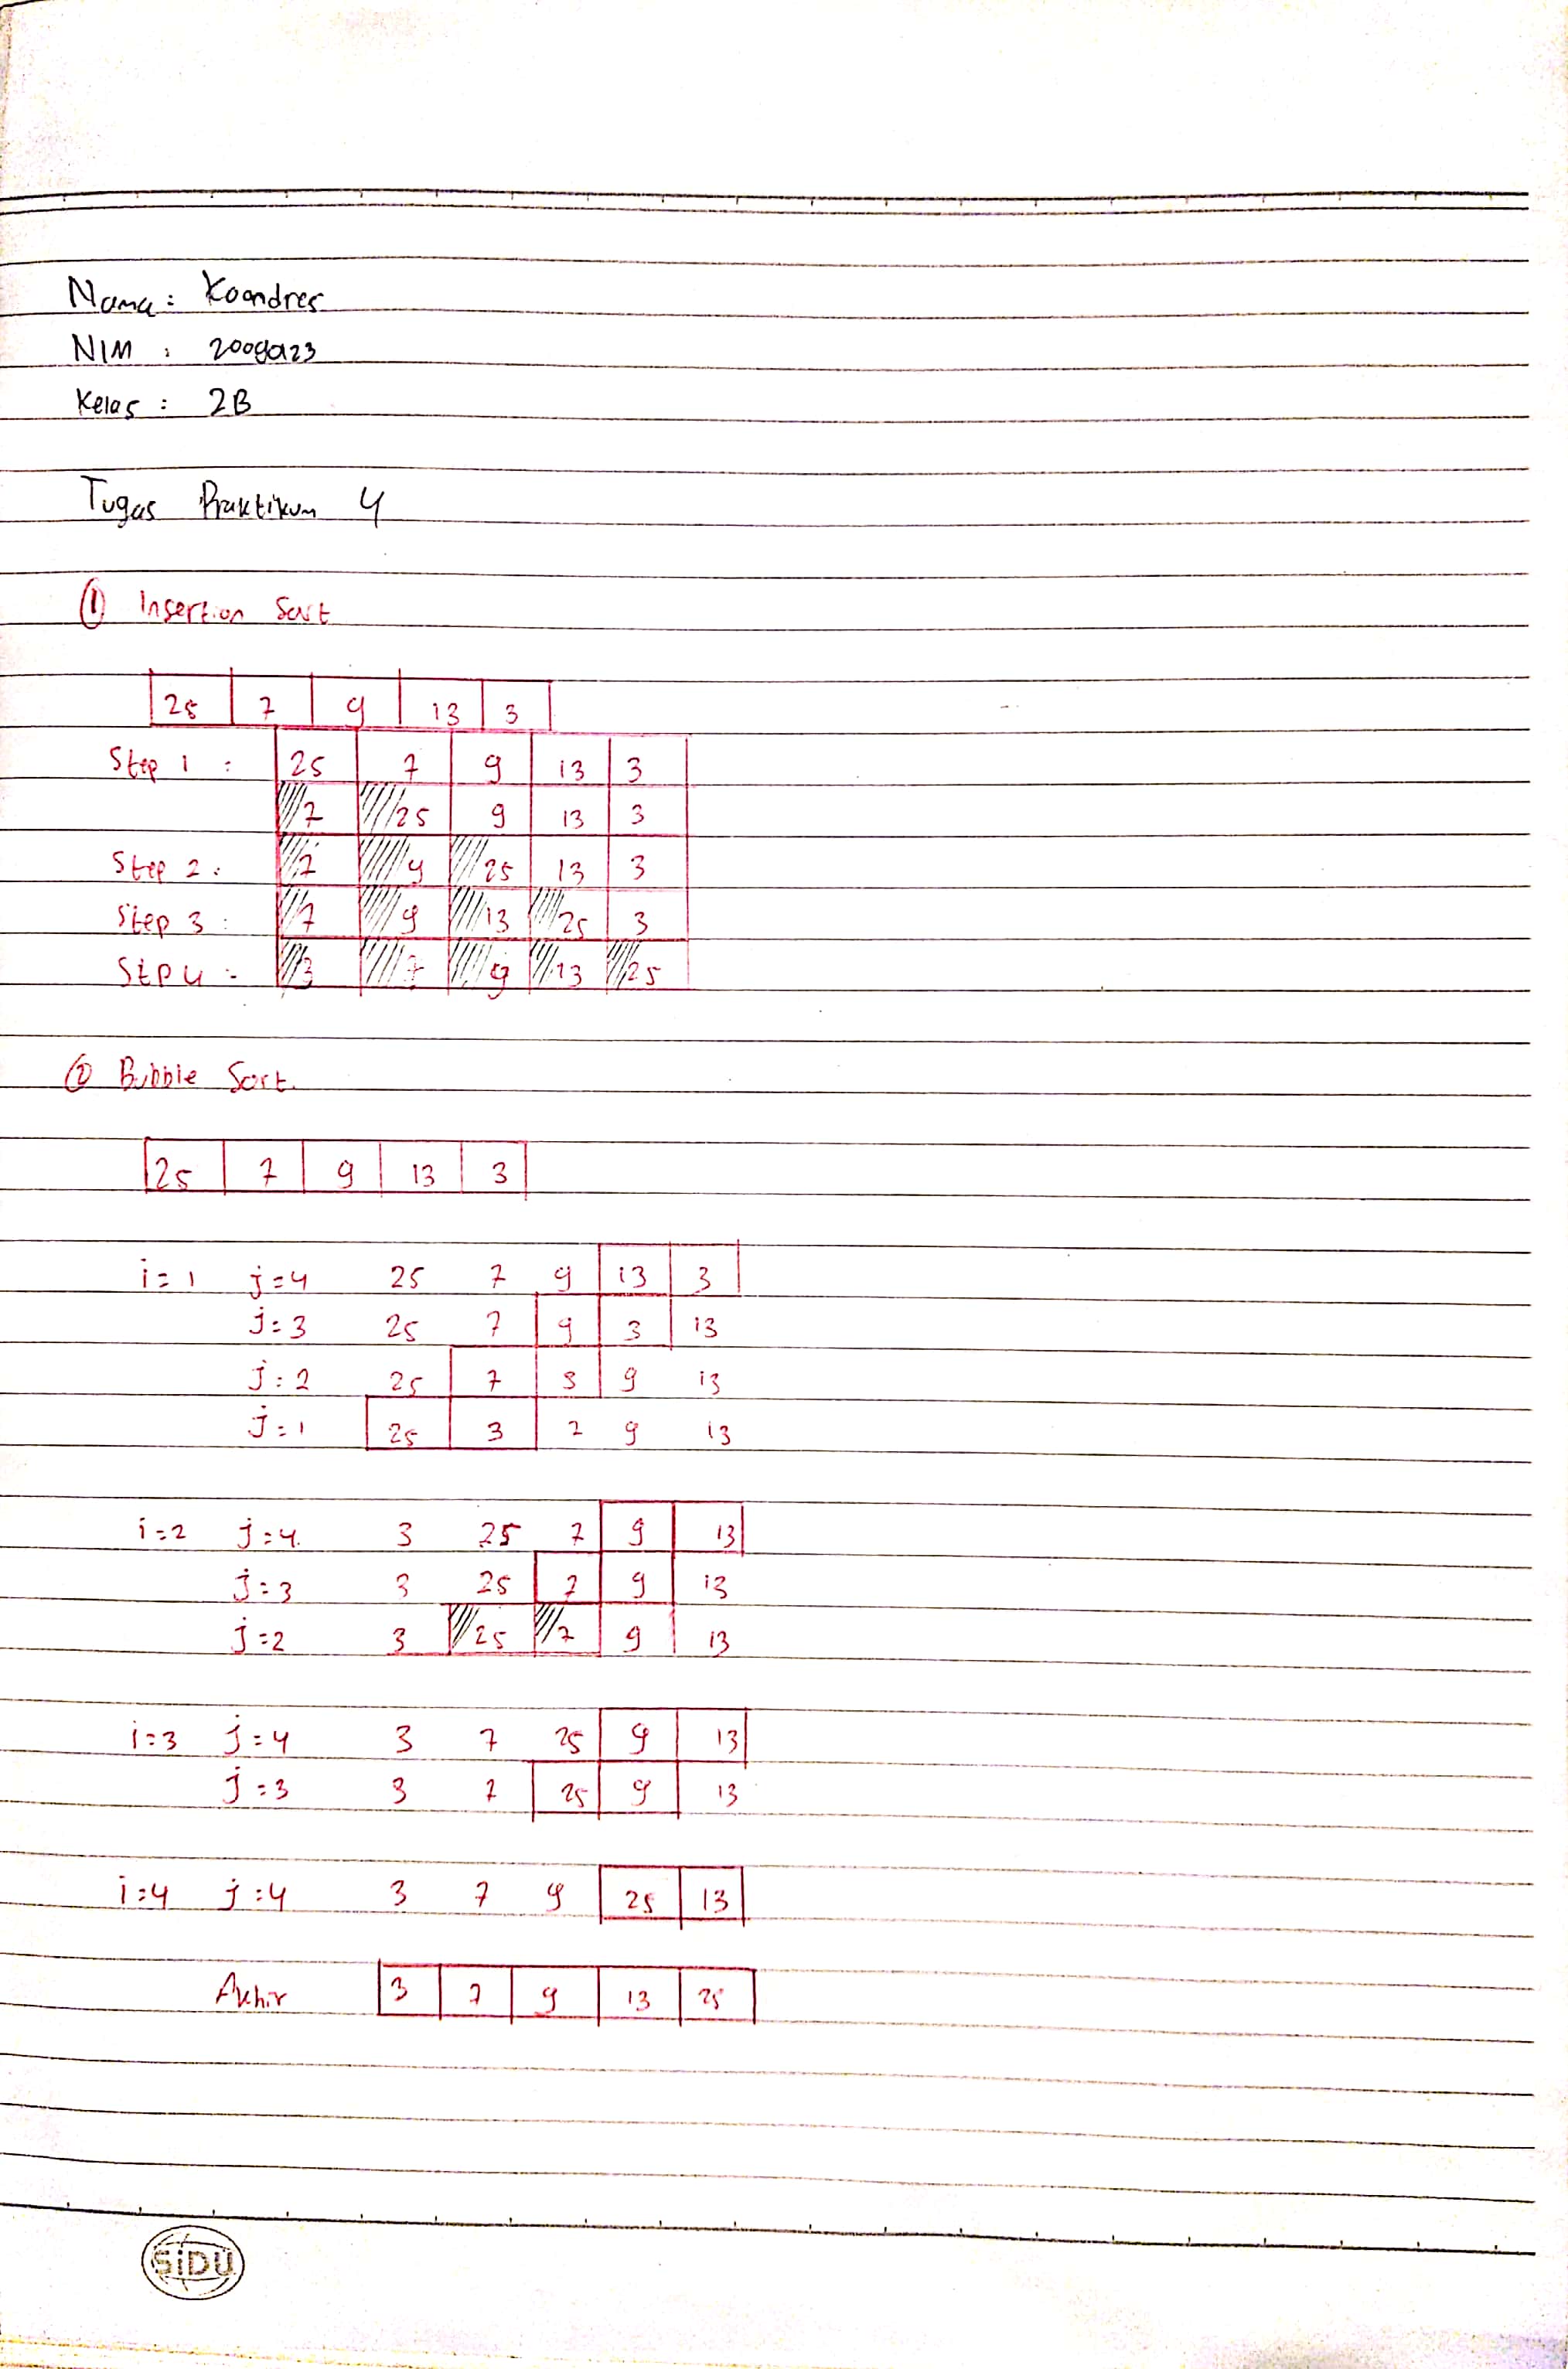 Nama : Koandres
NIM : 20090123
Kelas : 2B
Tugas Praktikum 4
① Insertion Sort
25 7 9 13 3
Step 1 : 25 7 9 13 3
7 25 9 13 3
Step 2 : 7 9 25 13 3
Step 3 : 7 9 13 25 3
Stp 4 : 3 7 9 13 25
② Bubble Sort.
25 7 9 13 3
i=1 j=4 25 7 9 13 3
j=3 25 7 9 3 13
j=2 25 7 3 9 13
j=1 25 3 7 9 13
i=2 j=4. 3 25 7 9 13
j=3 3 25 7 9 13
j=2 3 25 7 9 13
i=3 j=4 3 7 25 9 13
j=3 3 7 25 9 13
i=4 j=4 3 7 9 25 13
Akhir 3 7 9 13 25
SiDU